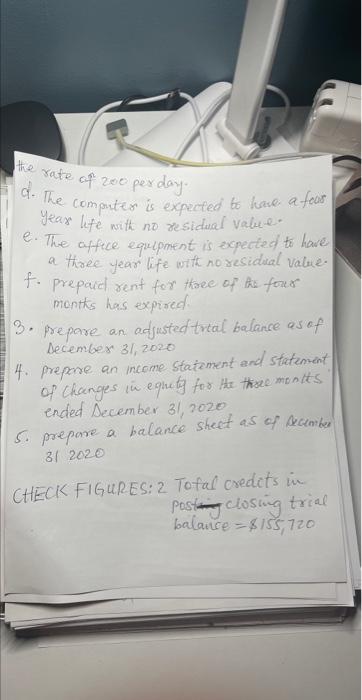 the rate of 200 per day.
d. The computer is expected to have a four
year life with no residual value.
e. The office equipment is expected to have
a three year life with no residual value.
f. prepaid rent for three of the four
months has expired.
3. prepare an adjusted trial balance as of
December 31, 2020
4. prepare an income statement and statement
of changes in equity for the three months
ended December 31, 2020
5. prepare a balance sheet as of December
31 2020
CHECK FIGURES: 2 Total credits in
posting closing trial
balance = $155,720